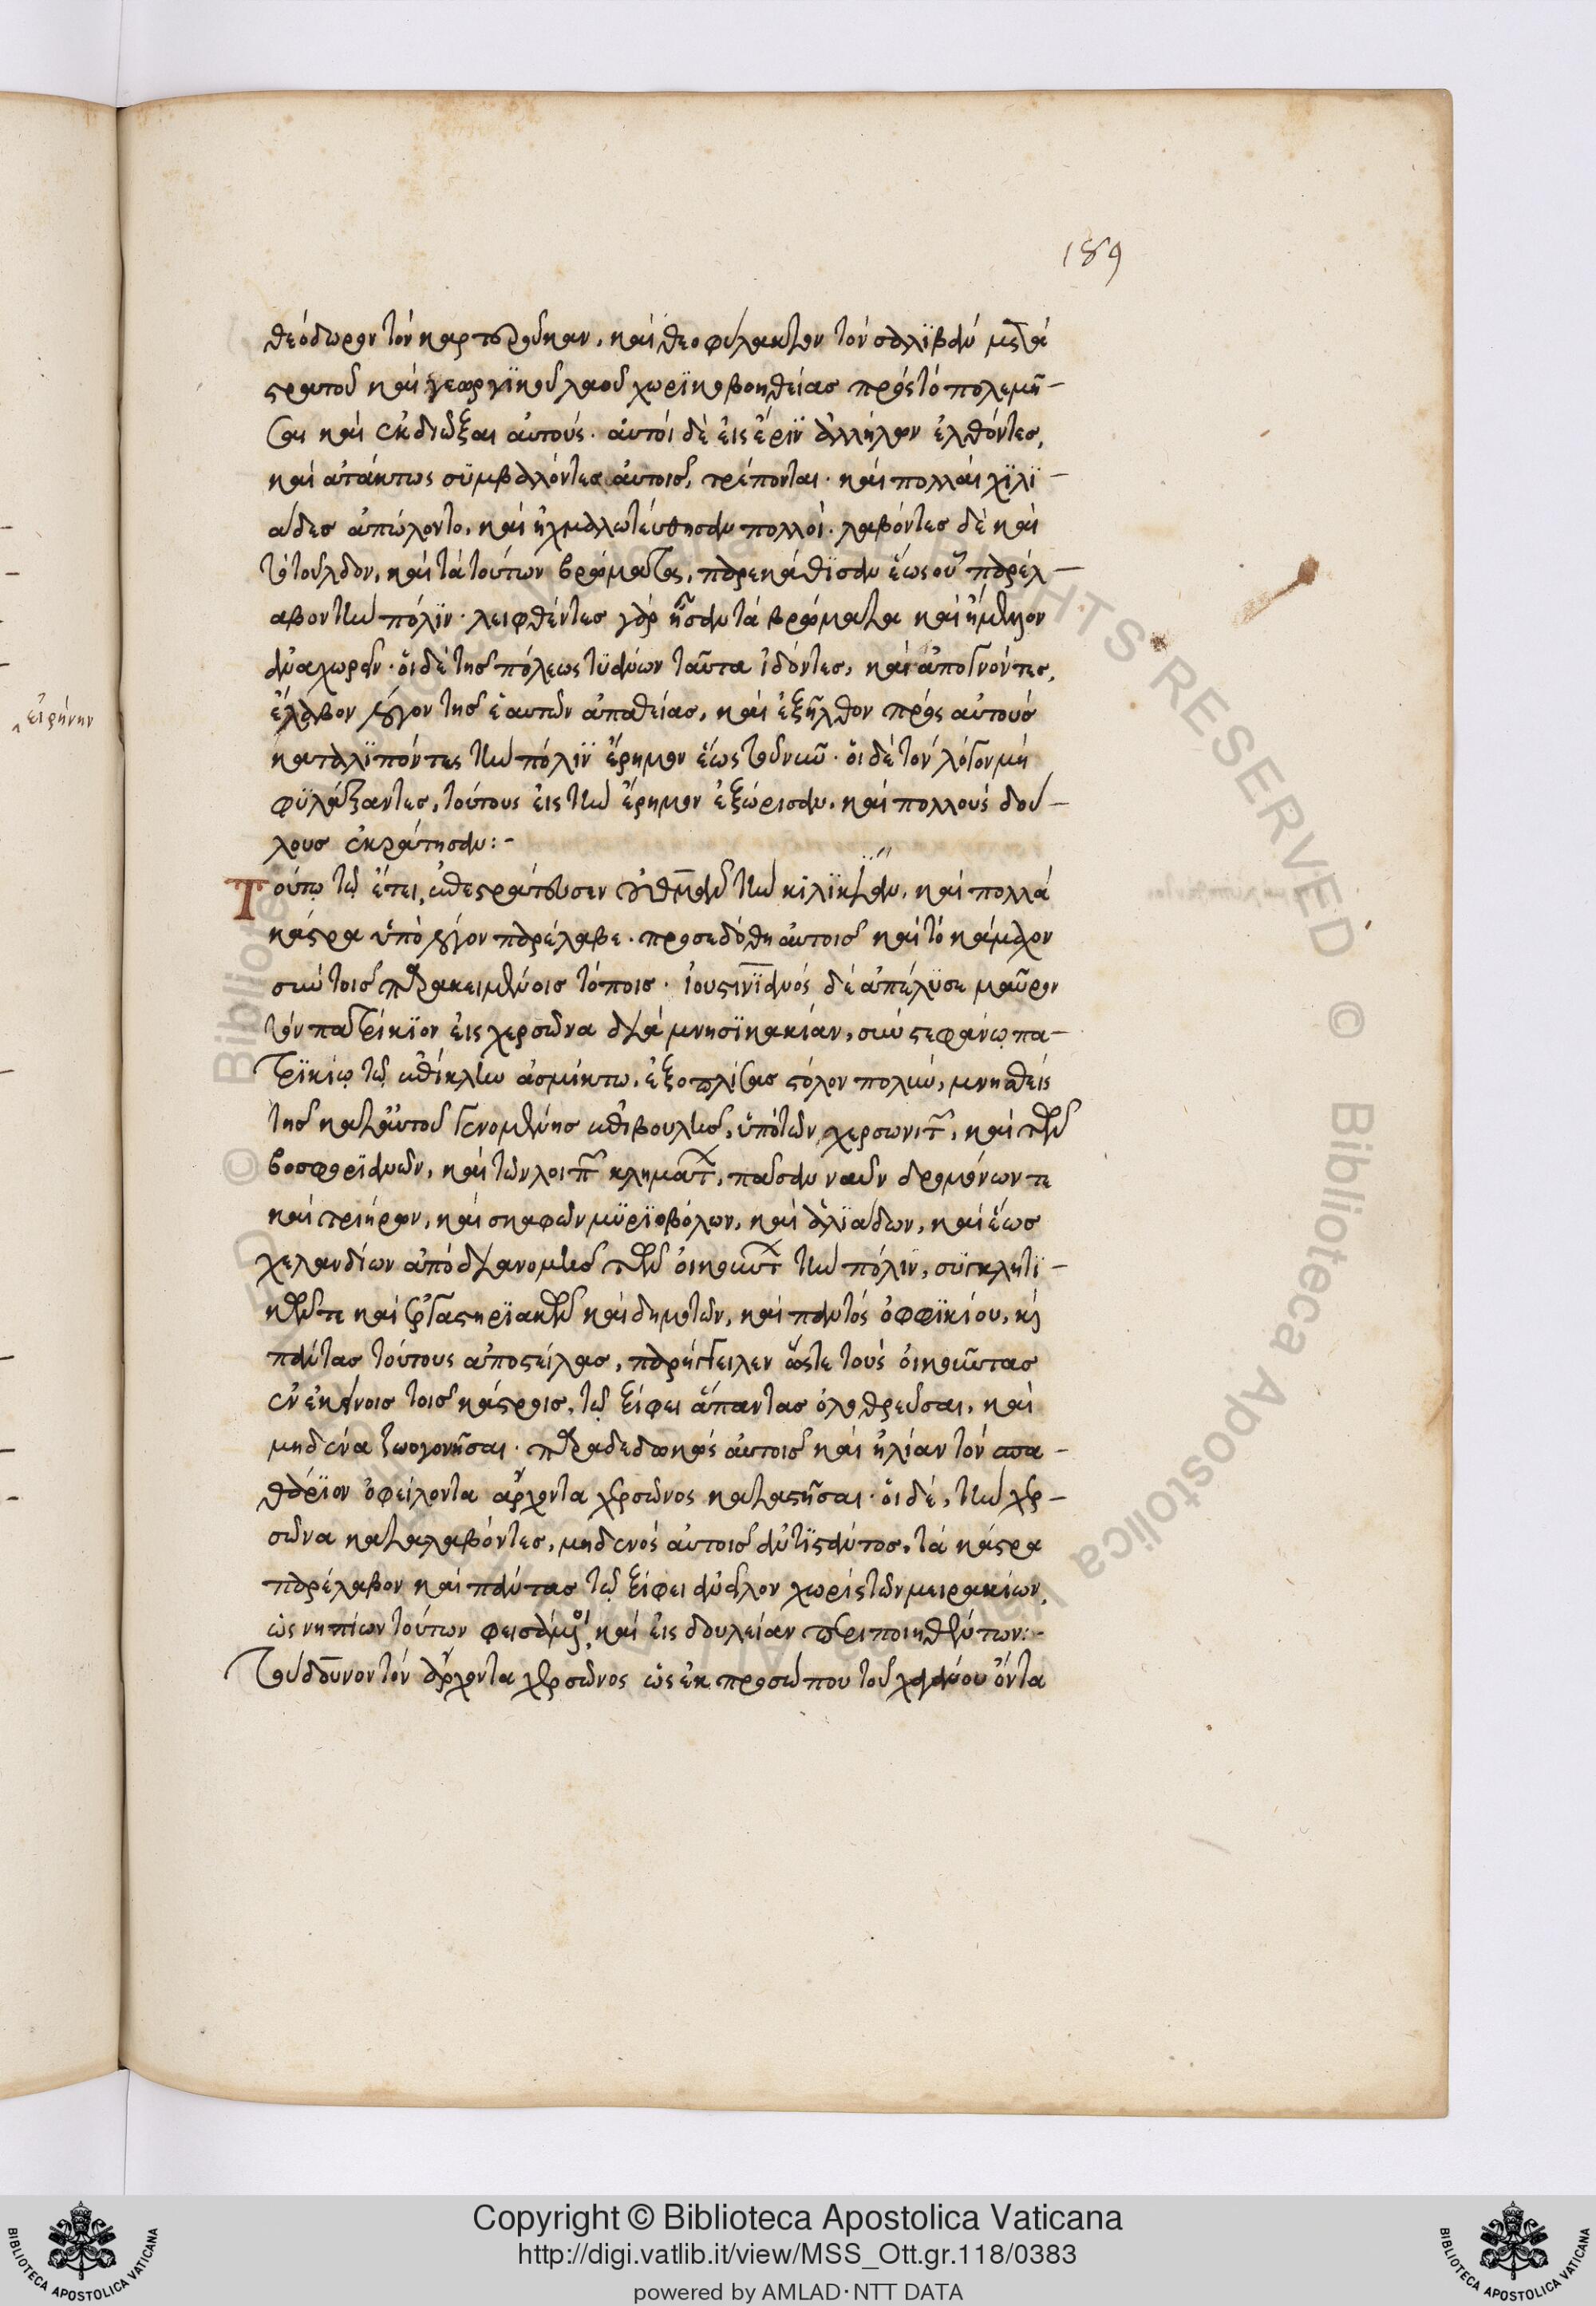 189
θεόδωρον τὸν καρτερούκαν, καὶ θεοφύλακτον τὸν σαλϊβὰν μετὰ
στρατοῦ καὶ γεωργϊκοῦ λαοῦ χωρϊκοβοηθείας πρὸς τὸ πολεμῆ-
σαι καὶ ἐκδιῶξαι αὐτούς. αὐτοὶ δὲ εἰς ἔρϊν ἀλλήλων ἐλθόντες,
καὶ ἀτάκτως σϋμβαλόντες αὐτοῖς, τρέπονται. καὶ πολλαὶ χϊλϊ-
άδες ἀπώλοντο, καὶ ἠχμαλωτεύθησαν πολλοί. λαβόντες δὲ καὶ
τὸ τοῦλδον, καὶ τὰ τούτων βρώματα, παρεκάθϊσαν ἕως οὗ παρέλ-
αβον τὴν πόλϊν. λειφθέντες γὰρ ἦσαν τὰ βρώματα καὶ ἤμελλον
ἀναχωρεῖν. οἱ δὲ τῆς πόλεως τϋάνων ταῦτα ἰδόντες, καὶ ἀπογνόντες,
ἔλαβον λόγον τῆς ἑαυτῶν ἀπαθείας, καὶ ἐξῆλθον πρὸς αὐτοὺς
καταλϊπόντες τὴν πόλϊν ἔρημον ἕως τοῦ νῦν. οἱ δὲ τὸν λόγον μὴ
φϋλάξαντες, τούτους εἰς τὴν ἔρημον ἐξώρισαν. καὶ πολλοὺς δού-
λους ἐκράτησαν:-
Τούτῳ τῷ ἔτει, ἐπεστράτευσεν οὐθμὰν τὴν κιλϊκίαν, καὶ πολλὰ
κάστρα ὑπὸ λόγον παρέλαβε. προσεδόθη αὐτοῖς καὶ τὸ κάμαχον
σὺν τοῖς παρακειμένοις τόποις. ἰουστινϊανὸς δὲ ἀπέλϋσε μαῦρον
τὸν πατρίκϊον εἰς χερσῶνα διὰ μνησϊκακίαν, σὺν στεφάνῳ πα-
τρϊκίῳ τῷ ἐπίκλην ἀσμίκτω. ἐξοπλίσας στόλον πολὺν, μνησθεὶς
τῆς κατ' αὐτοῦ γενομένης ἐπιβουλῆς, ὑπὸ τῶν χερσωνιτῶν, καὶ τῶν
βοσφορϊανῶν, καὶ τῶν λοιπῶν κλημάτων, πᾶσαν ναῦν δρομόνων τε
καὶ τριήρων, καὶ σκαφῶν μϋρϊοβόλων, καὶ ἁλϊάδων, καὶ ἕως
χελανδίων ἀπὸ διανομῆς τῶν οἰκούντων τὴν πόλϊν, σϋγκλητϊ-
κῶν τε καὶ ἐργαστηρϊακῶν καὶ δημοτῶν, καὶ παντὸς ὀφφϊκίου. κὶ
πάντας τούτους ἀποστείλας, παρήγγειλεν ὥστε τοὺς οἰκοῦντας
ἐν ἐκείνοις τοῖς κάστροις, τῷ ξίφει ἅπαντας ὀλοθρεῦσαι, καὶ
μηδένα ζωογονῆσαι. παραδεδωκὼς αὐτοῖς καὶ ἠλίαν τὸν σπα-
θάρϊον ὀφείλοντα ἄρχοντα χερσῶνος καταστῆσαι. οἱ δὲ, τὴν χερ-
σῶνα καταλαβόντες, μηδενὸς αὐτοῖς ἀντϊστάντος, τὰ κάστρα
παρέλαβον καὶ πάντας τῷ ξίφει ἀνεῖλον χωρὶς τῶν μειρακίων,
ὡς νηπίων τούτων φεισάμενοι, καὶ εἰς δουλείαν περιποιηθέντων:-
Τούδδυνον τὸν ἄρχοντα χερσῶνος ὡς ἐκ προσώπου τοῦ χαγάνου ὄντα
εἰρήνην
Copyright © Biblioteca Apostolica Vaticana
http://digi.vatlib.it/view/MSS_Ott.gr.118/0383
powered by AMLAD·NTT DATA